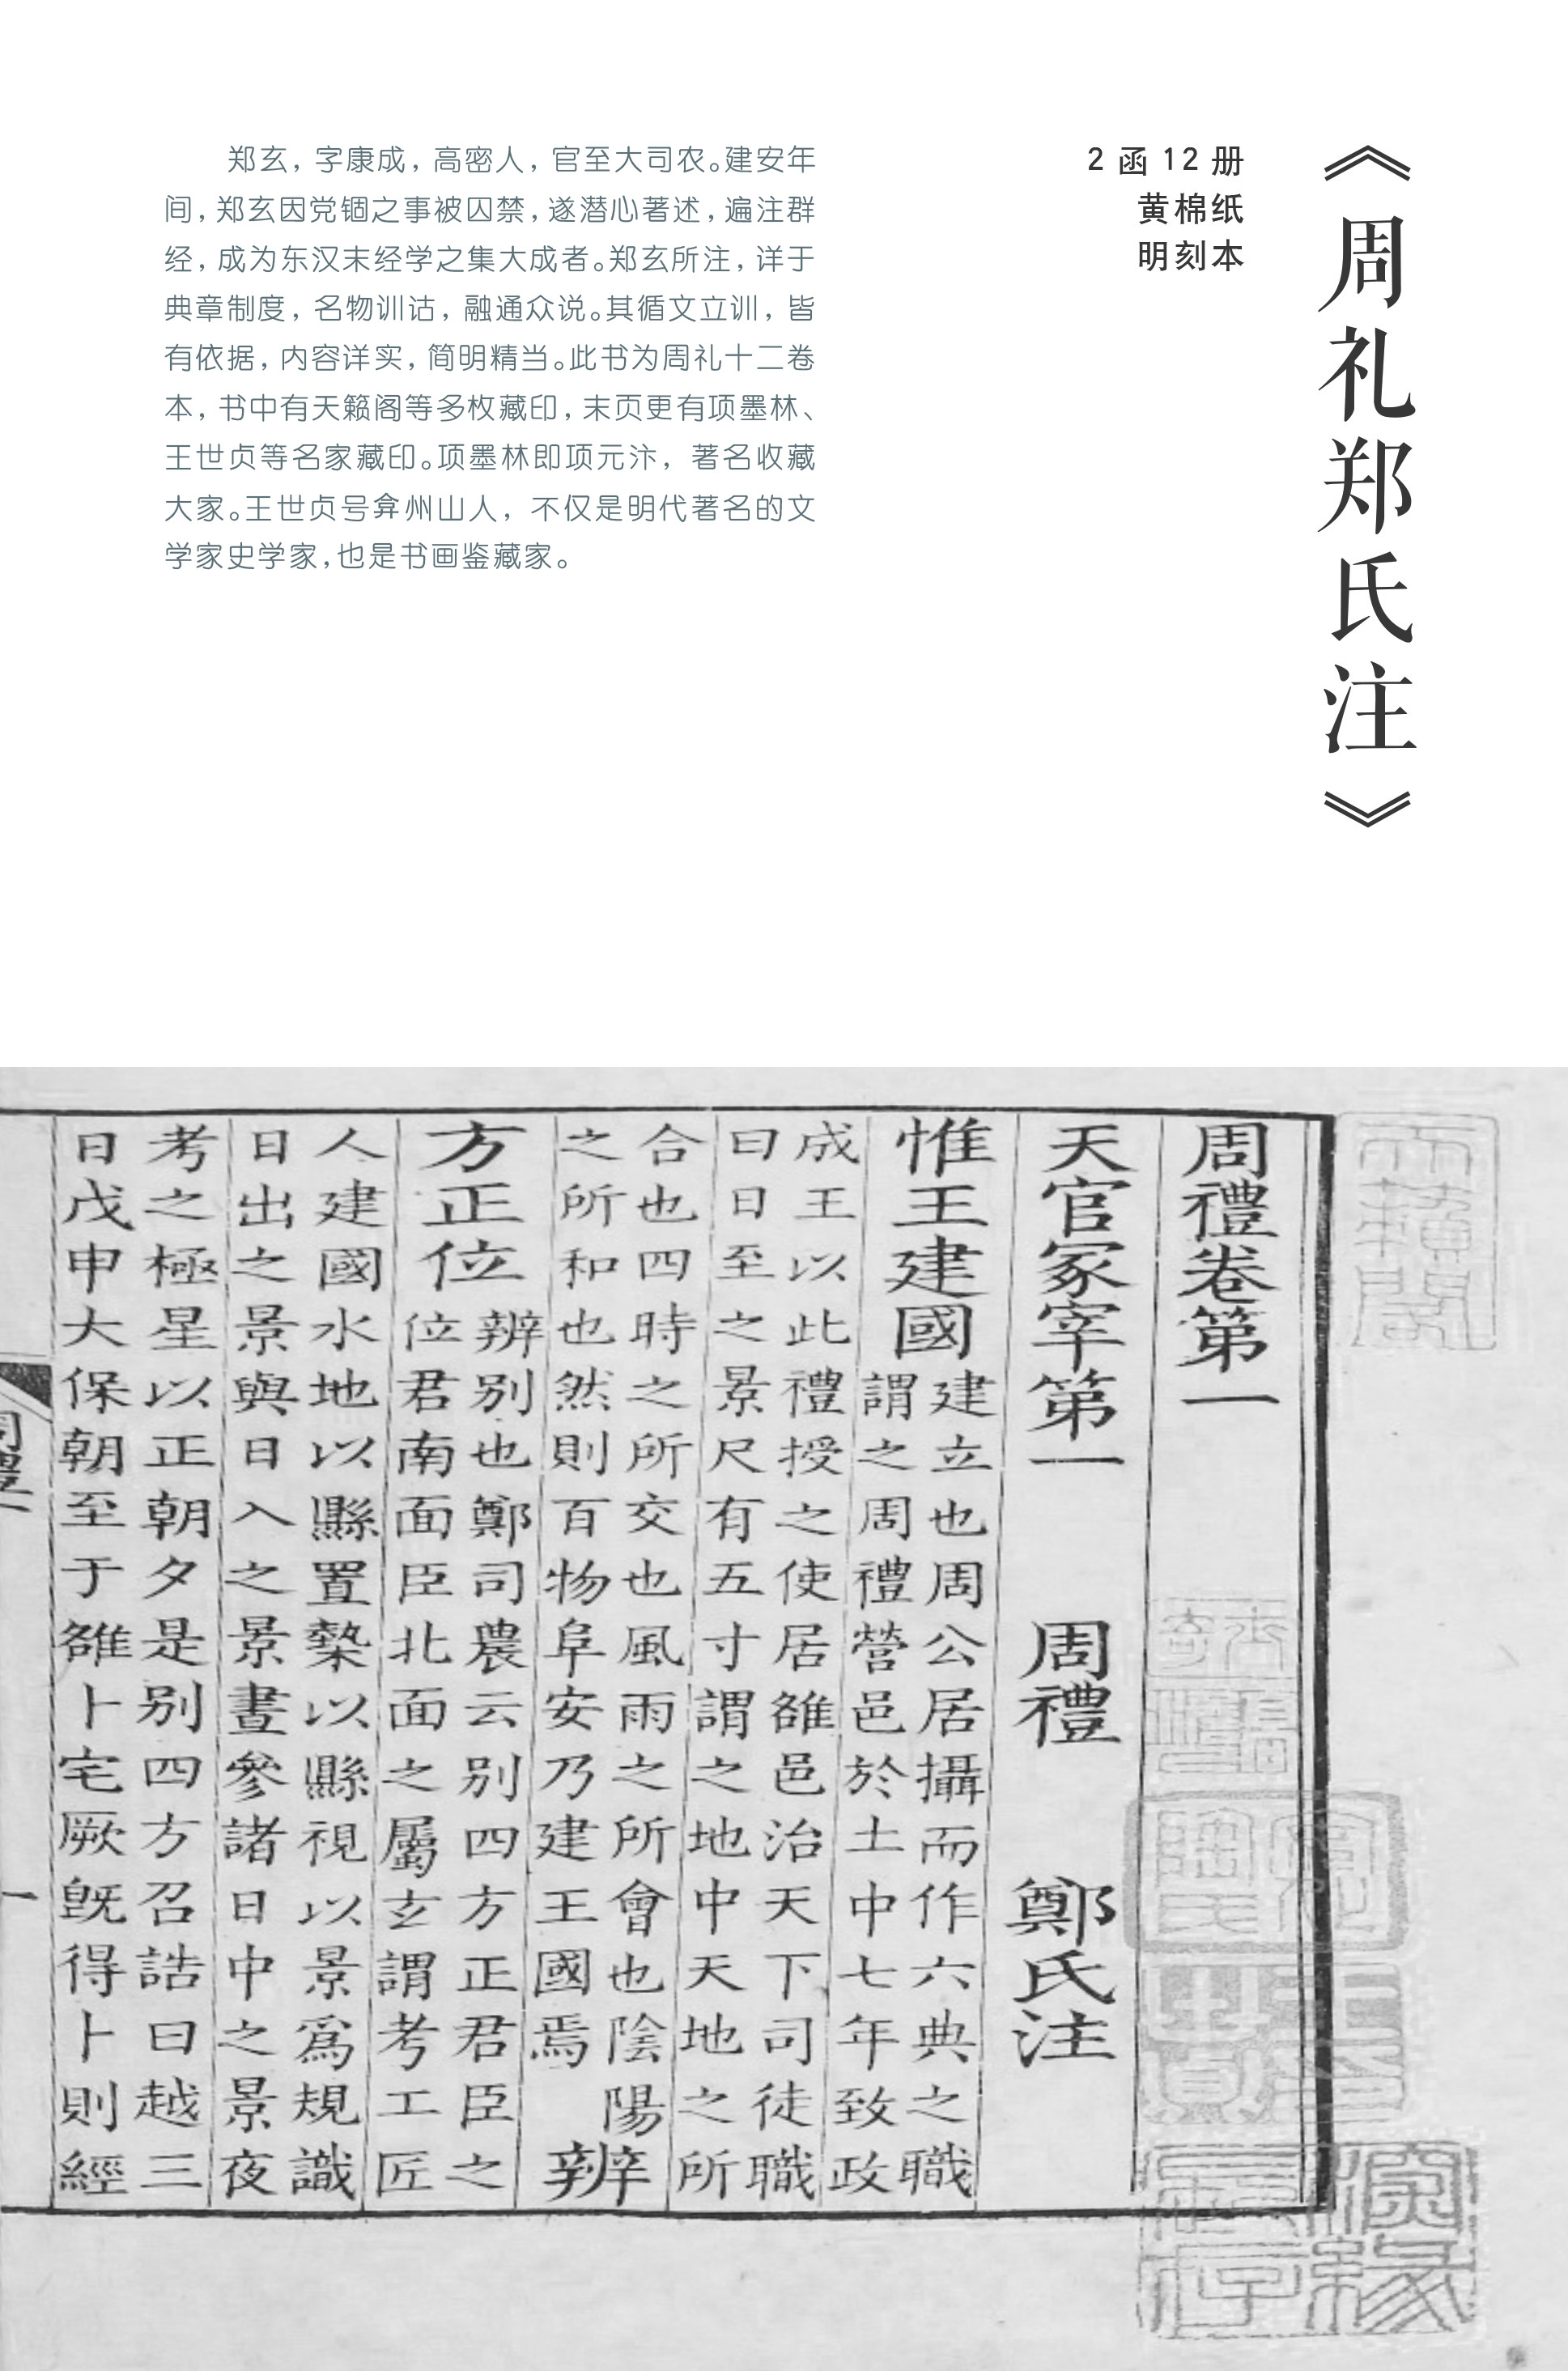 《周礼郑氏注》
2 函 12 册
黄棉纸
明刻本
郑玄，字康成，高密人，官至大司农。建安年
间，郑玄因党锢之事被囚禁，遂潜心著述，遍注群
经，成为东汉末经学之集大成者。郑玄所注，详于
典章制度，名物训诂，融通众说。其循文立训，皆
有依据，内容详实，简明精当。此书为周礼十二卷
本，书中有天籁阁等多枚藏印，末页更有项墨林、
王世贞等名家藏印。项墨林即项元汴，著名收藏
大家。王世贞号弇州山人，不仅是明代著名的文
学家史学家，也是书画鉴藏家。
周禮卷第一
天官冢宰第一 周禮 鄭氏注
惟王建國
建立也周公居攝而作六典之職
謂之周禮營邑於土中七年致政
成王以此禮授之使居雒邑治天下司徒職
曰日至之景尺有五寸謂之地中天地之所
合也四時之所交也風雨之所會也陰陽
之所和也然則百物阜安乃建王國焉
辨
方正位
辨别也鄭司農云别四方正君臣之
位君南面臣北面之屬玄謂考工匠
人建國水地以縣置槷以縣視以景爲規識
日出之景與日入之景晝參諸日中之景夜
考之極星以正朝夕是别四方召誥曰越三
日戊申大保朝至于雒卜宅厥既得卜則經
周禮一
一